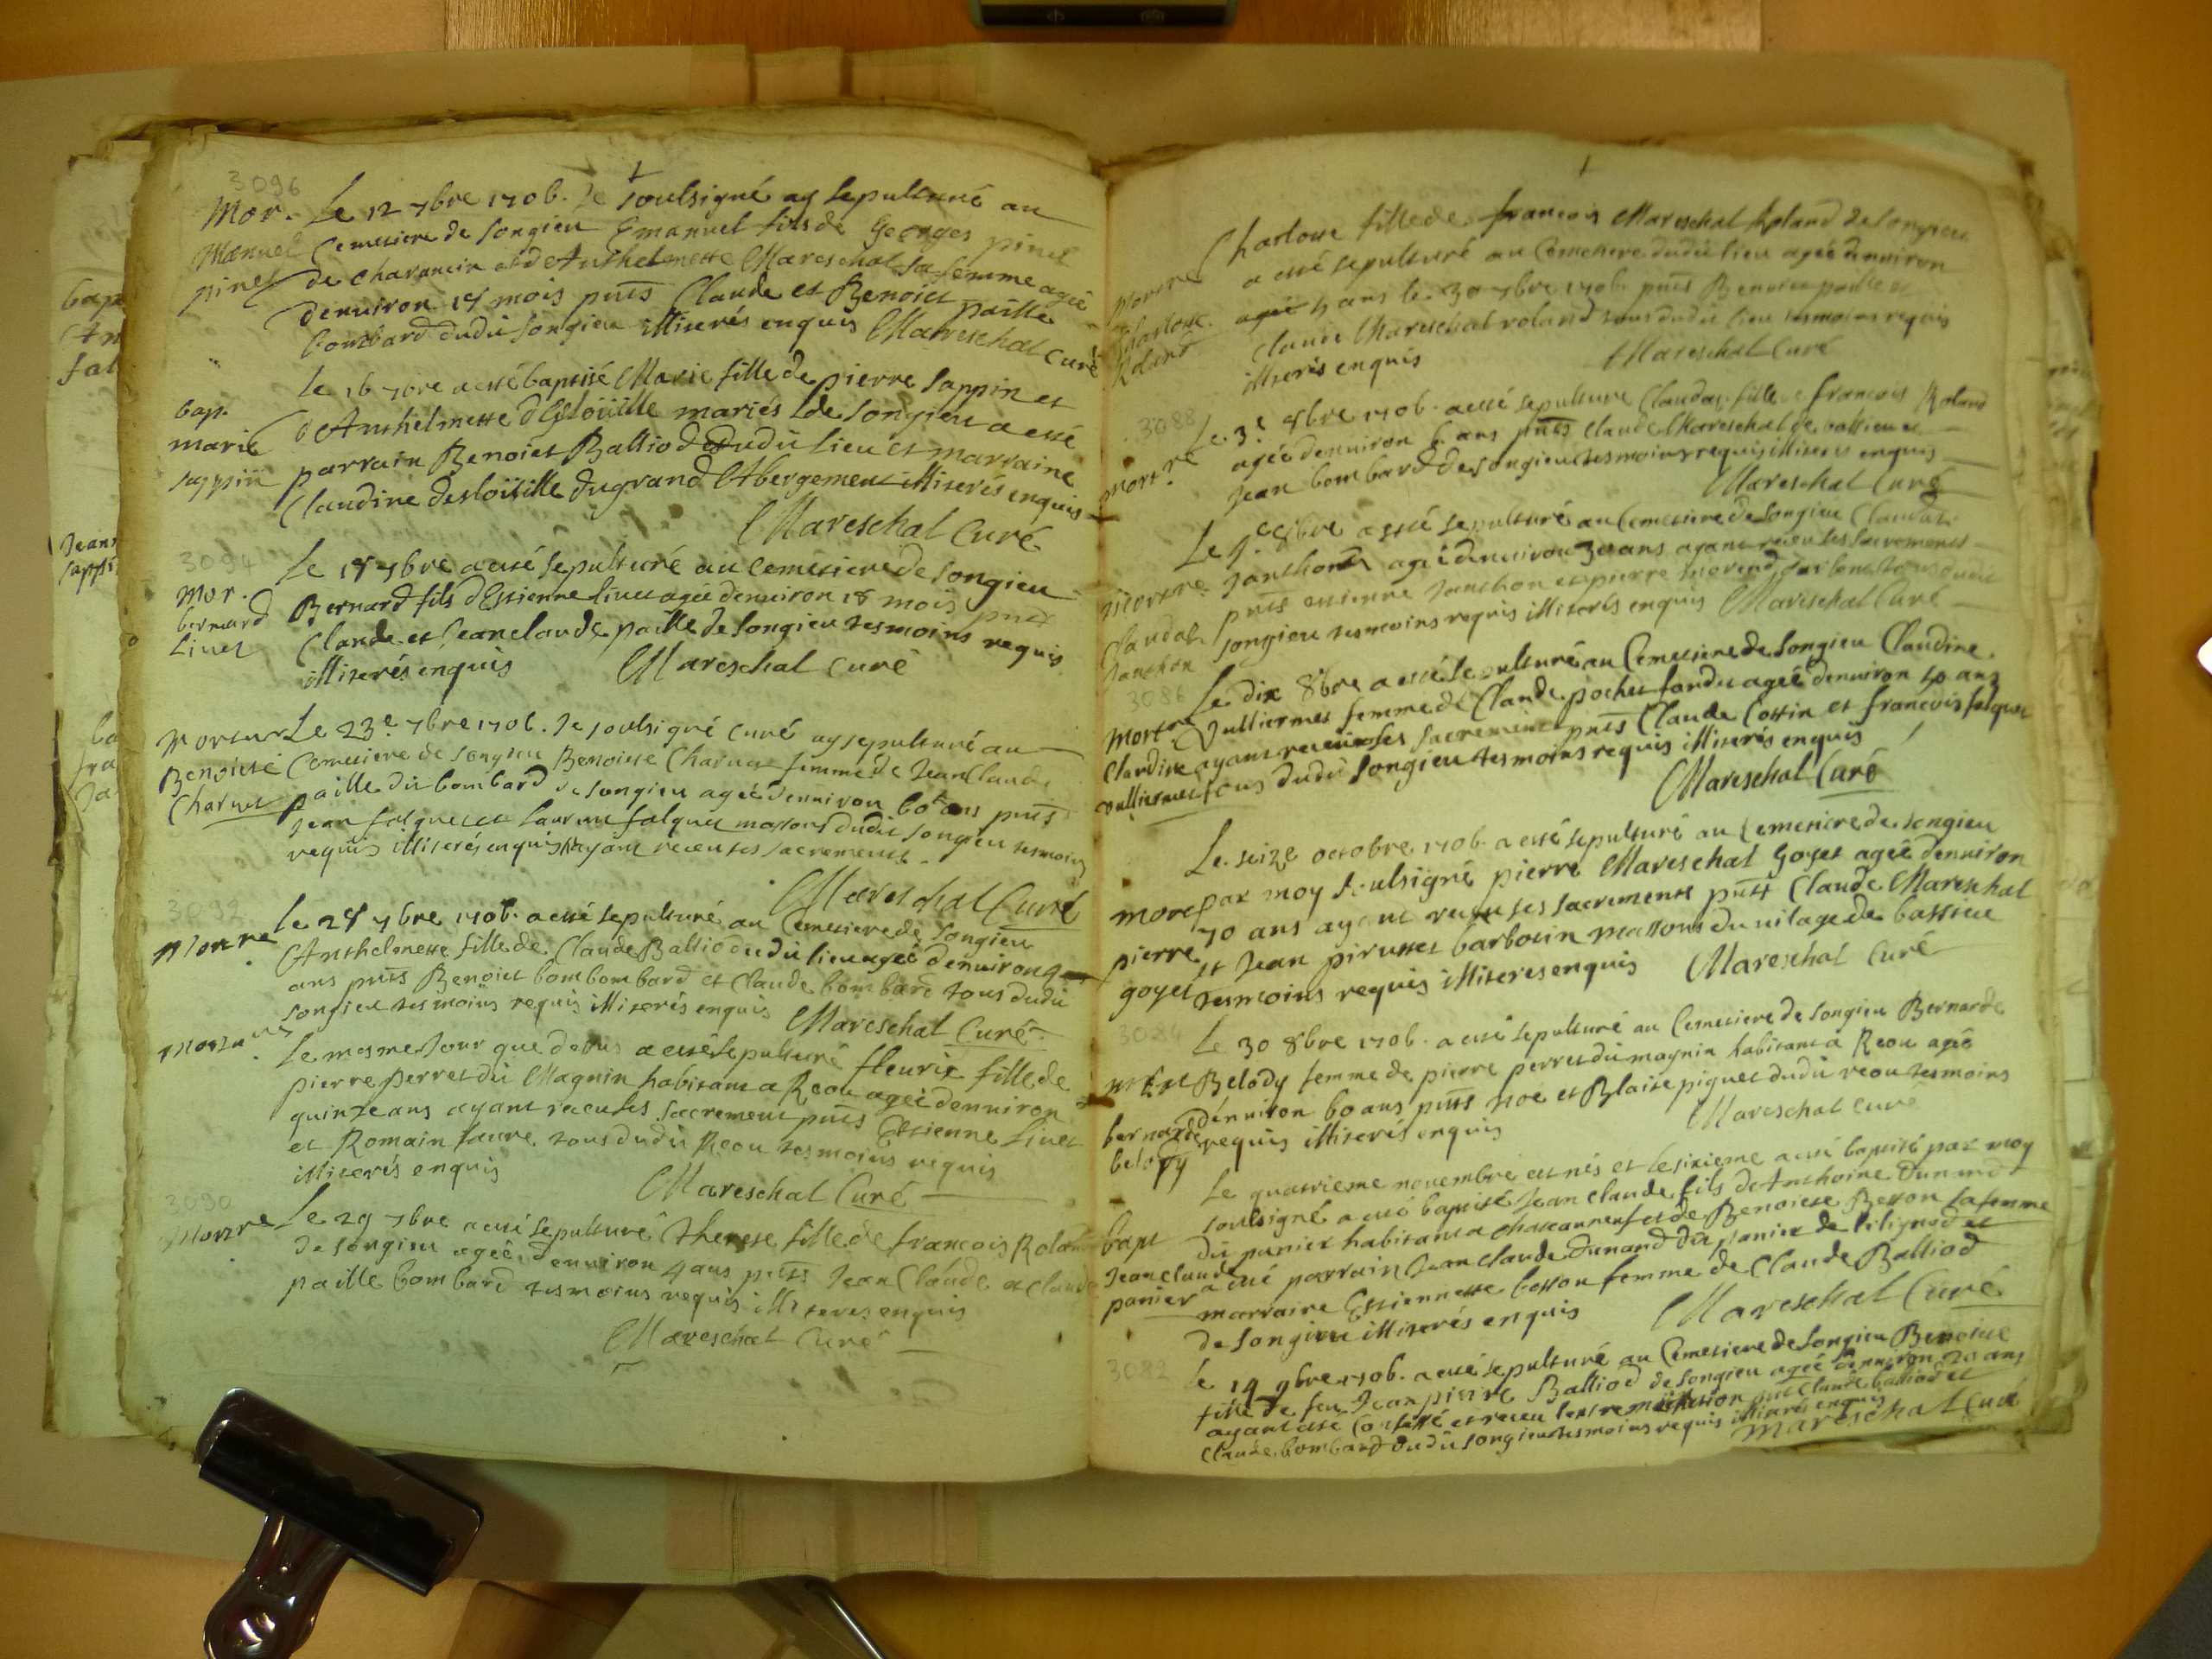 3096
Mor. Le 12 7bre 1706. Je soulsigné ay sepulturé au
Manuel Cemetiere de Songieu Emanuel fils de Georges pinet
pinet de charancin et d'Anthelmette Mareschal sa femme agée
d'enuiron 18 mois pnts Claude et Benoict paille
bombard dudit songieu illiterés enquis Mareschal Curé
Le 16 7bre a esté baptisé Marie fille de pierre sappin et
bap. d'Anthelmette mariés de songieu a esté
marie parrain Benoict Balliod dudit lieu et marraine
sappin Claudine du grand Abergement illiterés enquis
Mareschal Curé
3094
Le 18 7bre a esté sepulturé au Cemetiere de Songieu
Mor. Bernard fils d'Estienne Liuet agée d'enuiron 18 mois pnts
bernard Claude et Jean claude paille de songieu tesmoins requis
Liuet illiterés enquis Mareschal Curé
Morture Le 23e 7bre 1706. Je soulsigné curé ay sepulturé au
Benoiste Cemetiere de songieu Benoiste Charuet femme de Jean Claude
Charuet paille dit bombard de songieu agée d'enuiron 60 ans pnts
Jean falquet et Laurent falquet massons dudit songieu tesmoins
requis illiterés enquis ayant receu ses sacrements.
Mareschal Curé
3092
Mortre Le 28 7bre 1706. a esté sepulturé au Cemetiere de Songieu
Anthelmette fille de Claude Balliod dudit lieu agée d'enuiron 4
ans pnts Benoict bombombard et Claude bombard tous dudit
songieu tesmoins requis illiterés enquis Mareschal Curé
Morture Le mesme Jour que dessus a esté sepulturé fleurie fille de
pierre perret dit Magnin habitant a Reou agée d'enuiron
quinze ans ayant receu ses sacrement pnts Estienne Liuet
et Romain faure tous dudit Reou tesmoins requis
illiterés enquis
Mareschal Curé
3090
Mortre Le 29 7bre a esté sepulturé Therese fille de francois Roland
de songieu agée d'enuiron 4 ans pnts Jean Claude et claude
paille bombard tesmoins requis illiterés enquis
Mareschal Curé
Charlotte fille de francois Mareschal Roland de Songieu
Mortre a esté sepulturé au Cemetiere dudit lieu agée d'enuiron
Charlotte agée 7 ans le 30 7bre 1706. pnts Benoict paille et
Roland Claude Mareschal roland tous dudit lieu tesmoins requis
illiterés enquis Mareschal Curé
3088
Le 3e 8bre 1706. a esté sepulture Claudat fille francois Roland
mortre agée d'enuiron 6 ans pnts Claude Mareschal de bassieu et
Jean bombard de songieu tesmoins requis illiterés enquis
Mareschal Curé
Le a esté sepulturé au Cemetiere de songieu Claudat
Mortre Janthon agé d'enuiron 30 ans ayant receu ses sacrements
Claudat pnts estienne Janthon et pierre tous dudit
Janthon songieu tesmoins requis illiterés enquis Mareschal Curé
3086
Le dix 8bre a esté sepulturé au Cemetiere de Songieu Claudine
Mortre Vulliermet femme de Claude pochet agée d'enuiron 40 ans
Claudine ayant receu ses sacrement pnts Claude Cottin et francois falquet
vulliermet tous dudit Songieu tesmoins requis illiterés enquis
Mareschal Curé
Le seize octobre 1706 a esté sepulturé au Cemetiere de songieu
more par moy soulsigné pierre Mareschal Goyet agée d'enuiron
pierre 70 ans ayant receu ses sacrements pnts Claude Mareschal
goyet et Jean pirusset barbotin massons du uilage de bassieu
tesmoins requis illiteres enquis Mareschal Curé
3084
Le 30 8bre 1706. a esté sepulturé au Cemetiere de Songieu Bernarde
Belody femme de pierre perret dit magnin habitant a Reou agée
bernarde d'enuiron 60 ans pnts noé et Blaise piquet dudit reou tesmoins
belody requis illiterés enquis Mareschal Curé
Le quatrieme nouembre est nés et le sixieme a esté baptisé par moy
soulsigné a esté baptisé Jean claude fils de Anthoine Dunand
bapt dit panier habitant a chateauneuf et de Benoiste Besson sa femme
Jean claude a esté parrain Jean claude Dunand dit panier de lilignod et
panier marraine Estiennette besson femme de Claude Balliod
de songieu illiterés enquis Mareschal Curé
3082
Le 14 9bre 1706. a esté sepulturé au Cemetiere de Songieu Benoiste
fille de feu Jean pierre Balliod de songieu agée d'enuiron 20 ans
ayant esté Confessé et receu pnts Claude balliod et
Claude bombard dudit songieu tesmoins requis illiterés enquis
Mareschal Curé